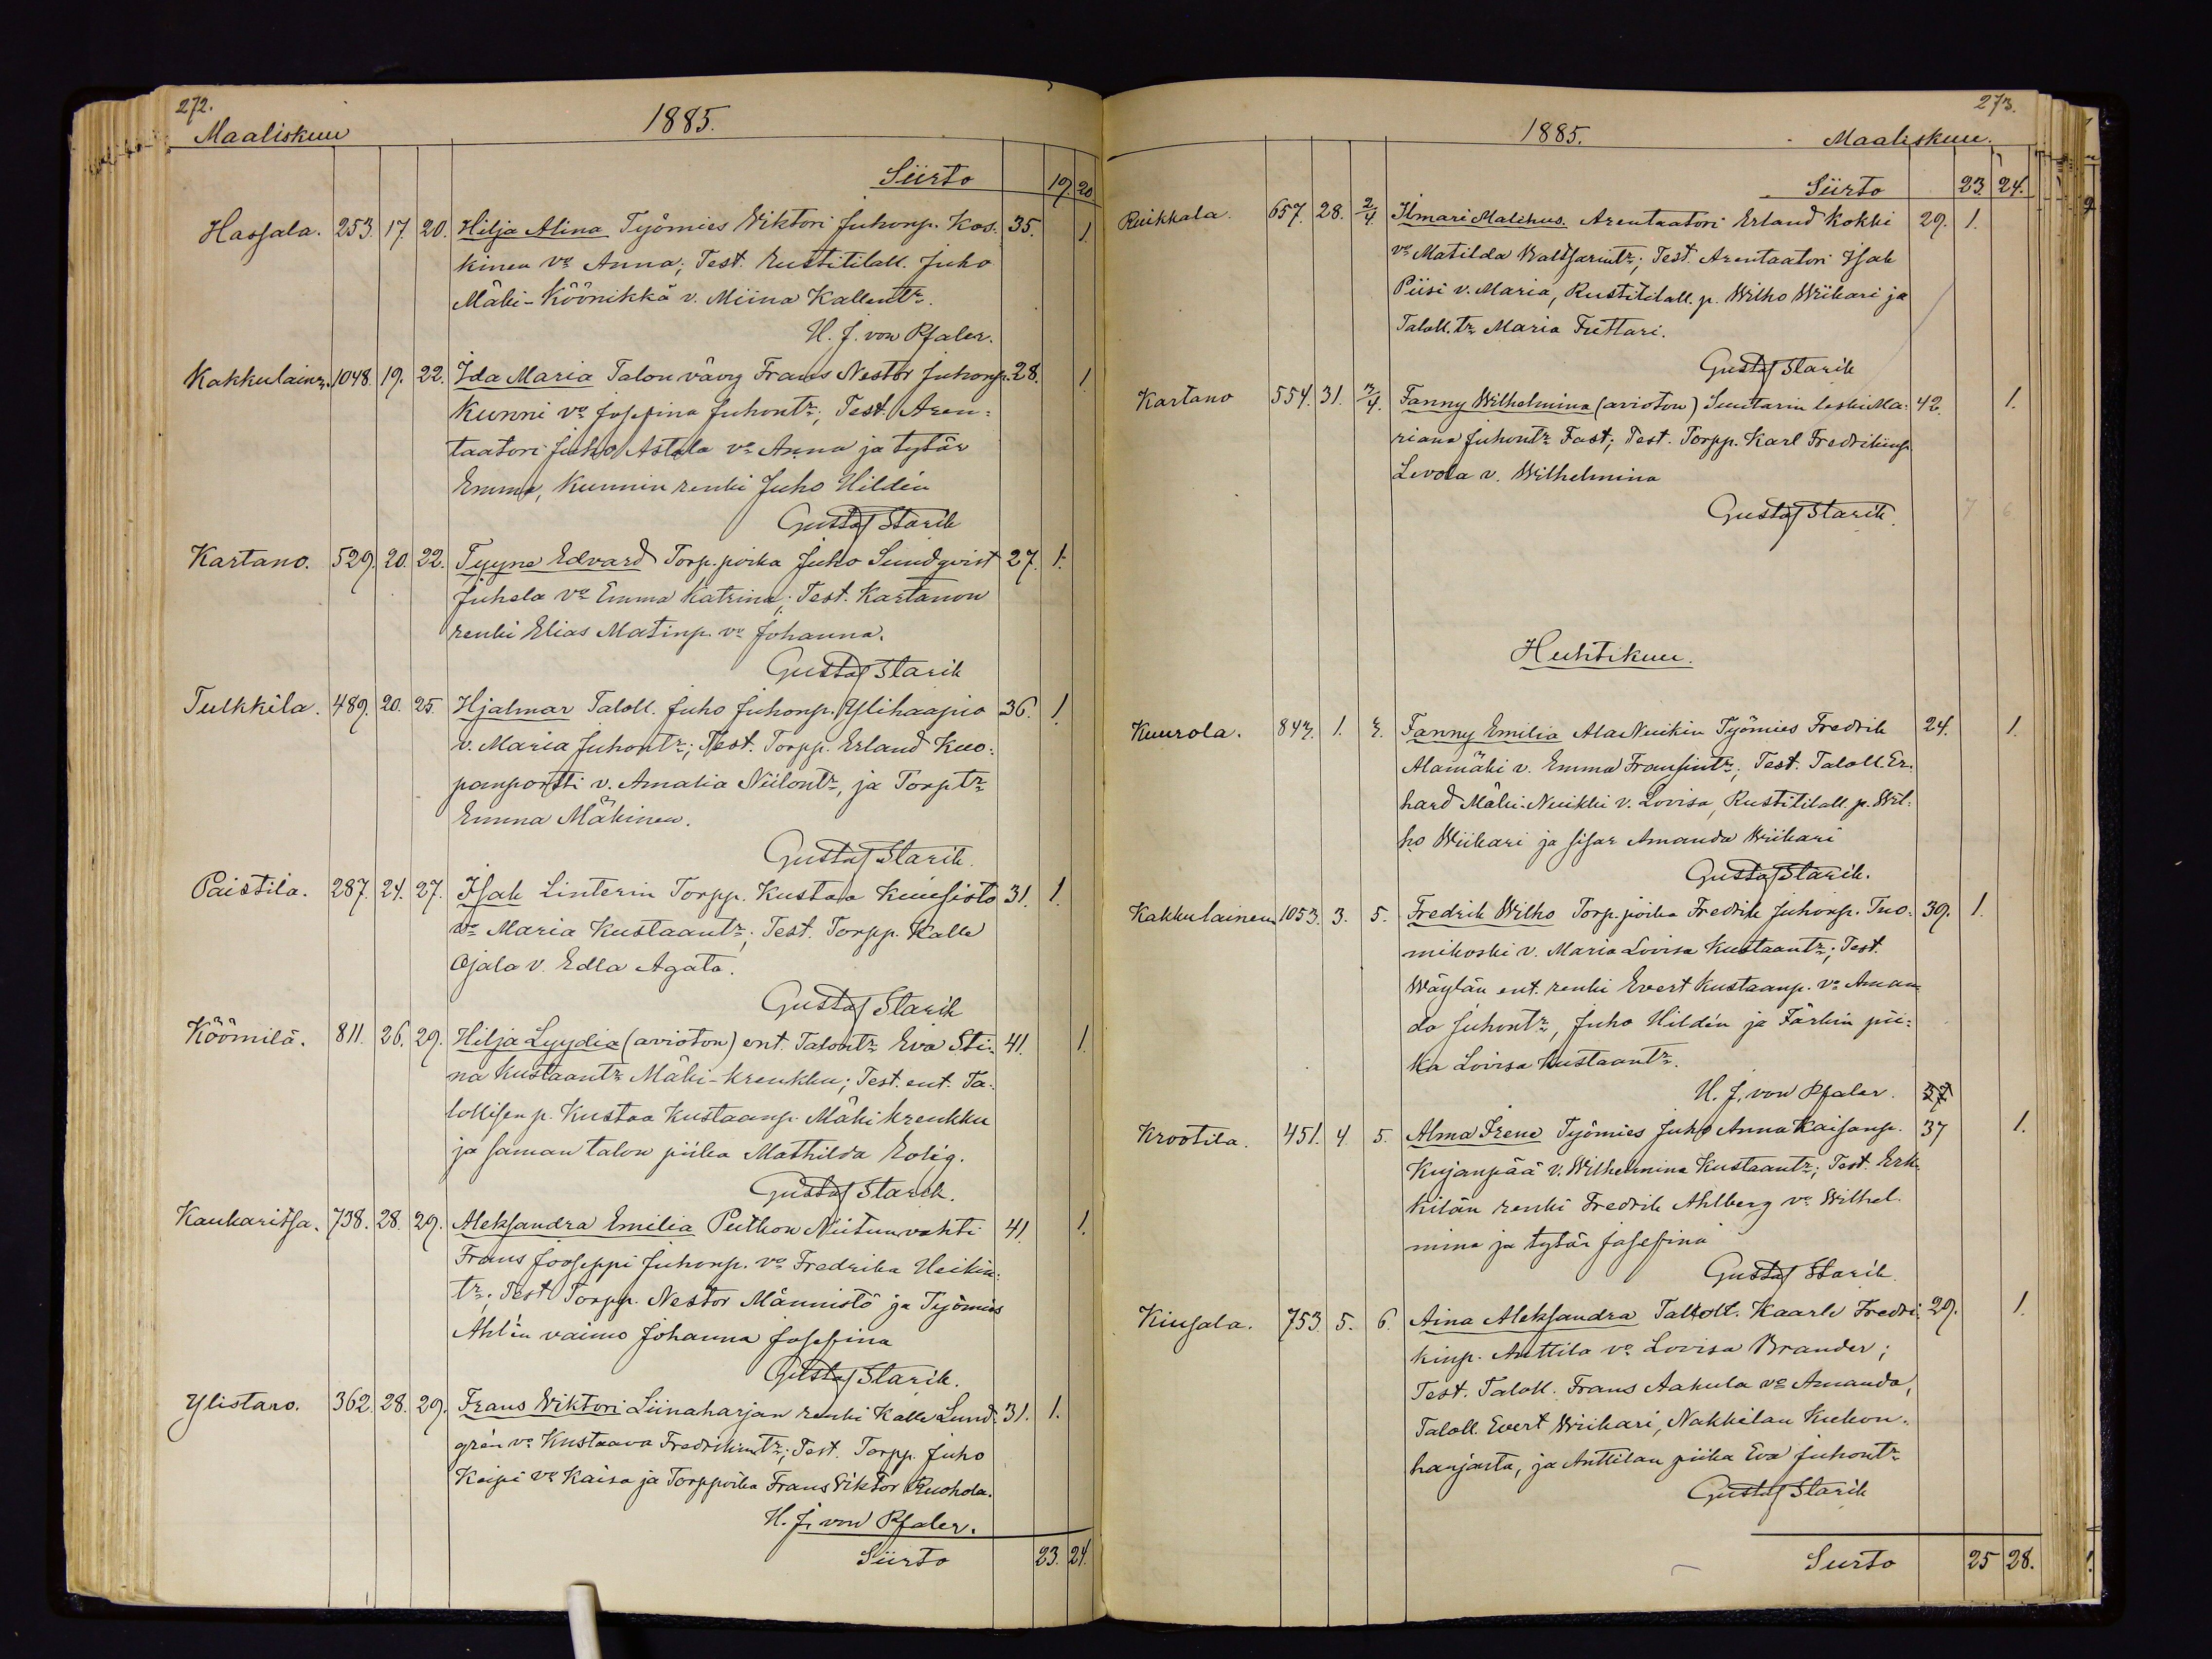 272.
Maaliskuu 1885.
Siirto 19. 20
Hassala. 253. 17. 20. Hilja Alina Työmies Wiktori Juhonp. Kos- 35. 1.
kinen vo Anna; Test. Rustitilall. Juho
Mäki-Köönikkä v. Miina Kallentr.
H. J. von Pfaler.
Kakkulainn. 1048. 19. 22. Ida Maria Talon vävy Frans Nestor Juhonp. 28. 1
Kunni vo Josefina Juhontr; Test. Aren-
taatori Juho Astala vo Anna ja tytär
Emma, Kunnin renki Juho Hildén
Gustaf Starik
Kartano. 529. 20. 22. Tyyne Edvard Torp. poika Juho Sundqvist 27. 1.
Juhela vo Emma Katrina; Test. Kartanon
renki Elias Matinp. vo Johanna.
Gustaf Starik
Tulkkila. 489. 20. 25. Hjalmar Taloll. Juho Juhonp. Ylihaapio 36. 1.
v. Maria Juhontr; Test. Torpp. Erland Kuo-
panportti v. Amalia Niilontr, ja Torptr
Emma Mäkinen.
Gustaf Starik.
Paistila. 287. 24. 27. Isak Linterin Torpp. Kustaa Kuusisto 31. 1.
vo Maria Kustaantr; Test. Torpp. Kalle
Ojala v. Edla Agata.
Gustaf Starik
Köömilä. 811. 26. 29. Hilja Lyydia (avioton) ent. Talontr Eva Sti- 41. 1.
na Kustaantr Mäki-krenkku; Test. ent. Ta-
lollisen p. Kustaa Kustaanp. Mäkikrenkku
ja saman talon piika Mathilda Eolig.
Gustaf Starik.
Kaukaritsa. 738. 28. 29. Aleksandra Emilia Putkon Niitunvahti 41. 1.
Frans Jooseppi Juhonp. vo Fredrika Heikin-
tr. Test Torpp. Nestor Männistö ja Työmies
Ahlén vaimo Johanna Josefina
Gustaf Starik.
Ylistaro. 362. 28. 29. Frans Wiktori Liinaharjan renki Kalle Lund- 31. 1.
grén vo Kustaava Fredrikintr; Test. Torpp. Juho
Koipi vo Kaisa ja Torppoika Frans Viktor Ruohola.
H. J. von Pfaler.
Siirto 23. 24.
273.
1885. Maaliskuu.
Siirto 23. 24.
Ruikkala. 657. 28. 2/4 Ilmari Malehus. Arentaatori Erland Kokki 29. 1.
vo Matilda Baltsarintr; Test. Arentaatori Isak
Piisi v. Maria, Rustitilall. p. Wilho Wiikari ja
Taloll. tr Maria Futtari.
Gustaf Starik
Kartano 554. 31. 3/4. Fanny Wilhelmina (avioton) Suutarin leski Ma- 42. 1.
riana Juhontr Fast; Test. Torpp. Karl Fredrikinp.
Levola v. Wilhelmina
Gustaf Starik.
7 6
Huhtikuu.
Kuurola. 843. 1. 3. Fanny Emilia Ala Nuikin Työmies Fredrik 24. 1.
Alamäki v. Emma Fransintr; Test. Taloll. Er-
hard Mäki-Nuikki v. Lovisa, Rustitilall. p. Wil-
ho Wiikari ja sisar Amanda Wiikari
Gustaf Starik.
Kakkulainen 1053. 3. 5. Fredrik Wilho Torp. poika Fredrik Juhonp. Tuo- 39. 1.
mikoski v. Maria Lovisa Kustaantr; Test.
Wäylän ent. renki Evert Kustaanp. vo Aman-
da Juhontr, Juho Hildén ja Färkin pii-
ka Lovisa Kustaantr.
H. J. von Pfaler. 27
Krootila. 451. 4. 5. Alma Irene Työmies Juho Anna Kaisanp. 37 1.
Kujanpää v. Wilhelmina Kustaantr; Test. Erk-
kilän renki Fredrik Ahlberg vo Wilhel-
mina ja tytär Josefina
Gustaf Starik.
Kiusala. 753. 5. 6. Aina Aleksandra Taloll. Kaarle Fredri- 29. 1.
kinp. Anttila vo Lovisa Brander;
Test. Taloll. Frans Aakula vo Amanda,
Taloll. Evert Wiikari, Nakkilan Kukon-
harjasta, ja Anttilan piika Eva Juhontr
Gustaf Starik
Siirto 25 28.